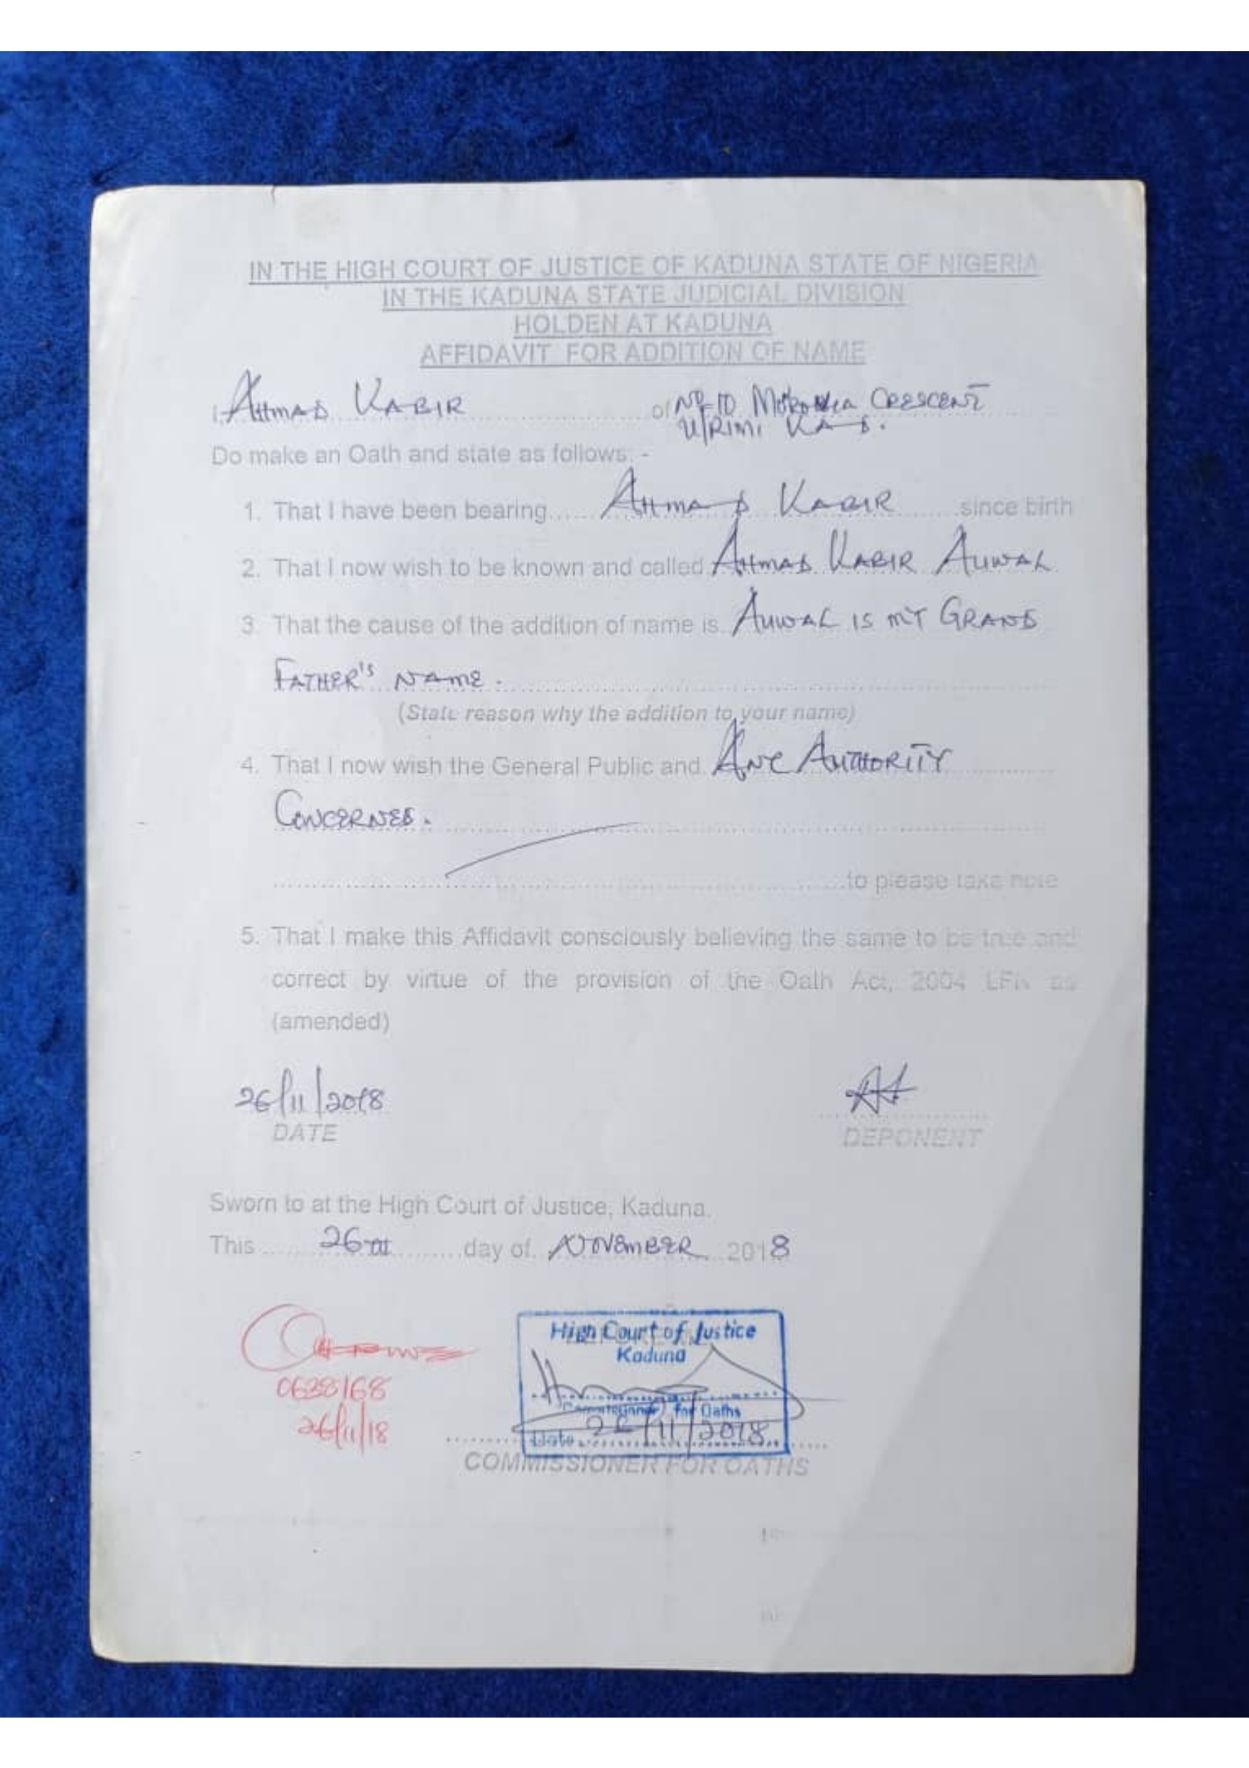 IN THE HIGH COURT OF JUSTICE OF KADUNA STATE OF NIGERIA
IN THE KADUNA STATE JUDICIAL DIVISION
HOLDEN AT KADUNA
AFFIDAVIT FOR ADDITION OF NAME
I, AHMAD KABIR of NO 10 CRESCENT
U/RIMI KAD.
Do make an Oath and state as follows: -
1. That I have been bearing...... AHMAD KABIR ......since birth
2. That I now wish to be known and called AHMAD KABIR AUWAL
3. That the cause of the addition of name is AUWAL IS MY GRAND
FATHER'S NAME.
(State reason why the addition to your name)
4. That I now wish the General Public and ANY AUTHORITY
CONCERNED.
to please take note
5. That I make this Affidavit consciously believing the same to be true and
correct by virtue of the provision of the Oath Act, 2004 LFN as
(amended)
26/11/2018
DATE
DEPONENT
Sworn to at the High Court of Justice, Kaduna.
This ........ 26TH ........ day of NOVEMBER 2018
High Court of Justice
Kaduna
Commissioner for Oaths
Date 26/11/2018
0628168
26/11/18
COMMISSIONER FOR OATHS